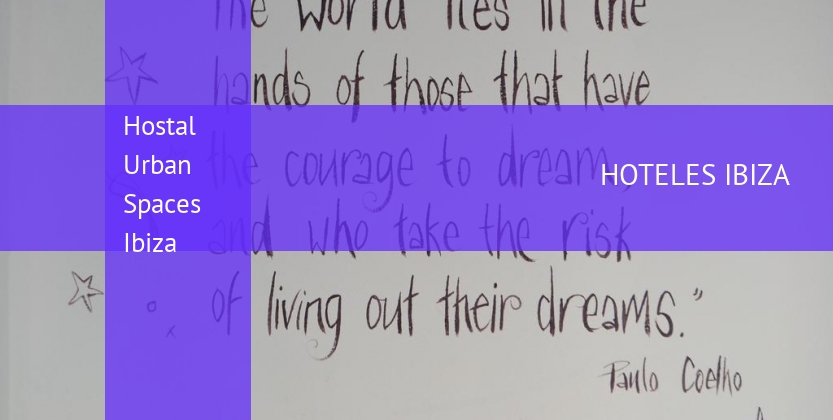 the world lies in the
hands of those that have
the courage to dream,
and who take the risk
of living out their dreams."
Paulo Coelho
Hostal
Urban
Spaces
Ibiza
HOTELES IBIZA